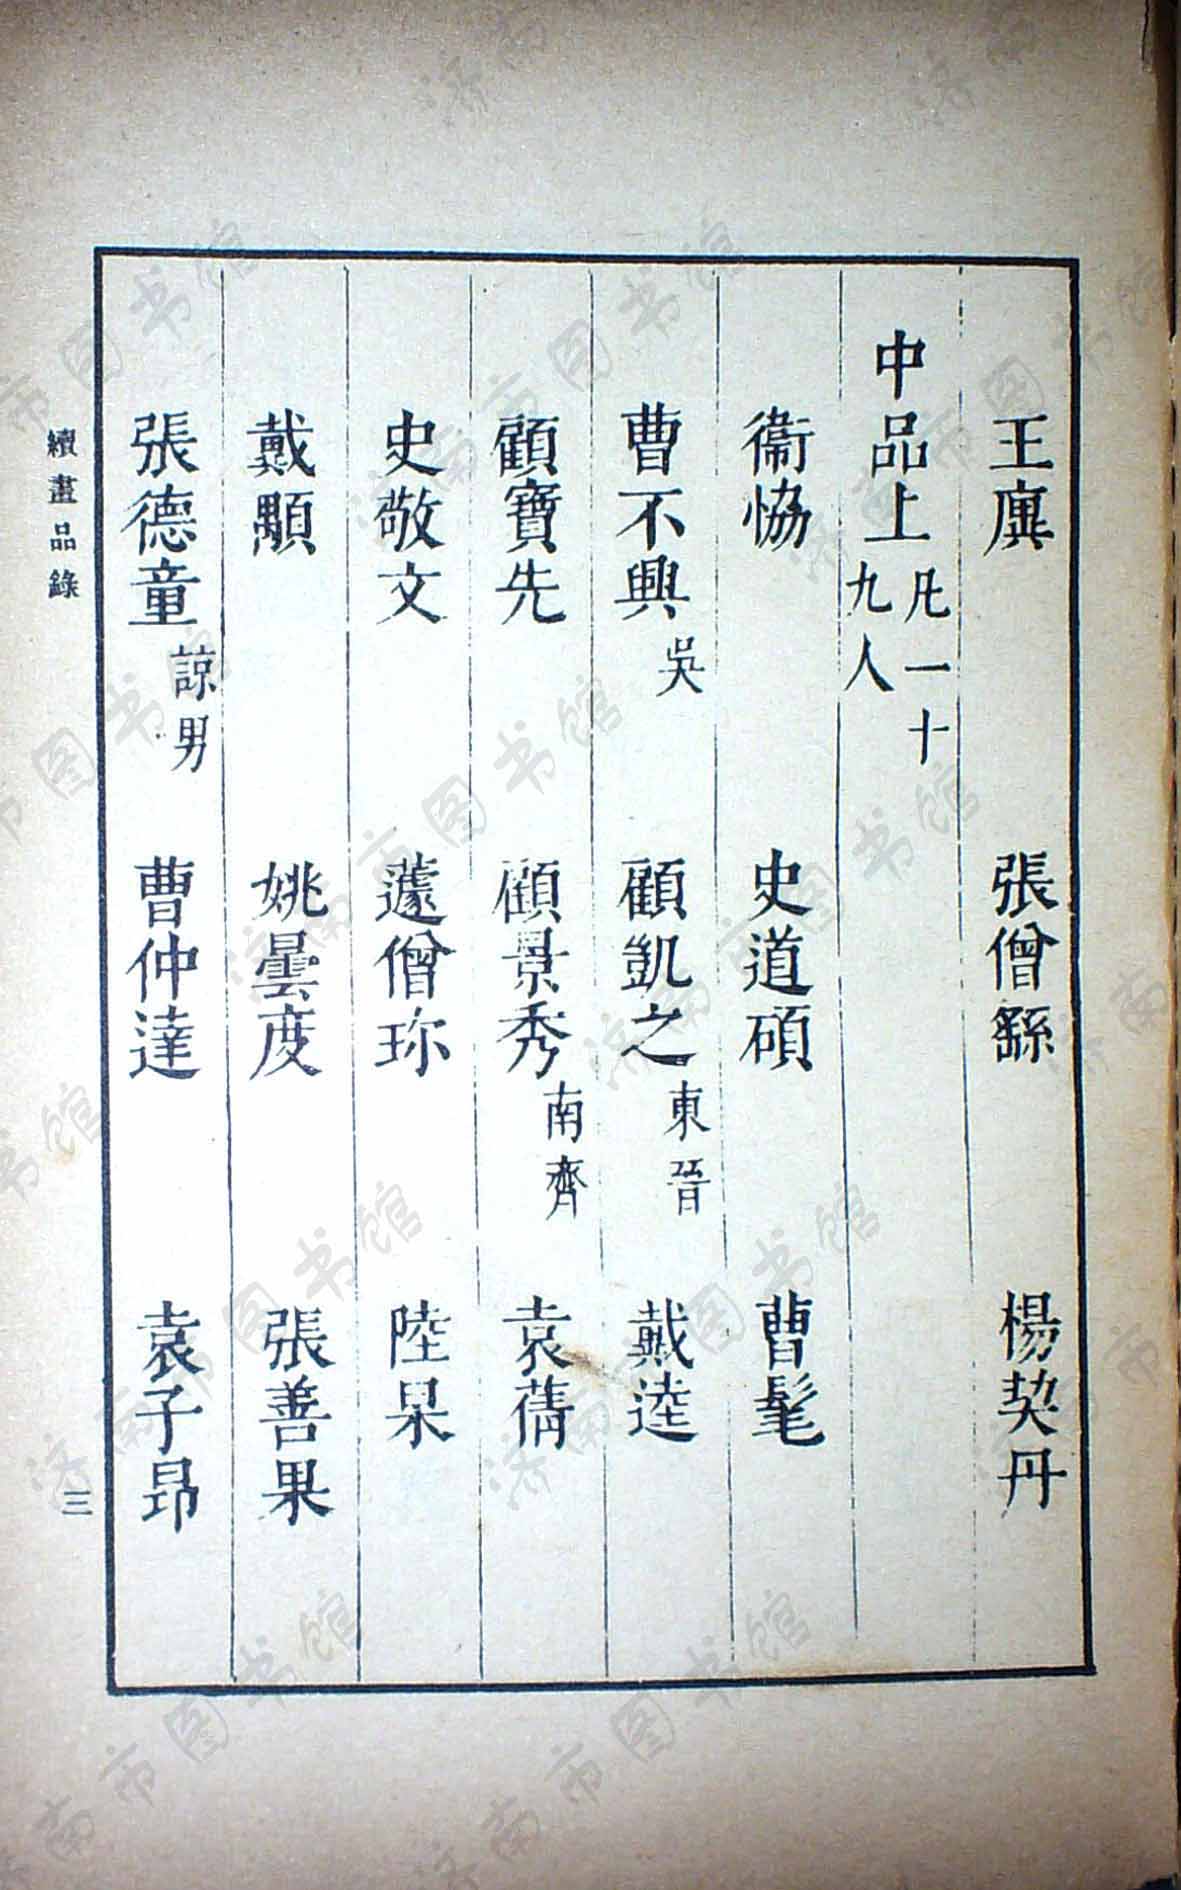 王廙　張僧繇　楊契丹
中品上凡一十九人
衞協　史道碩　曹髦
曹不興吳　顧凱之東晉　戴逵
顧寶先　顧景秀南齊　袁蒨
史敬文　蘧僧珎　陸杲
戴顒　姚曇度　張善果
張德童諒男　曹仲達　袁子昂
續畫品錄
三
济南市图书馆